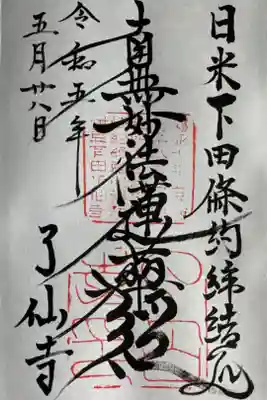 日米下田條約締結処
南無妙法蓮華経
令和五年
五月廿八日
了仙寺